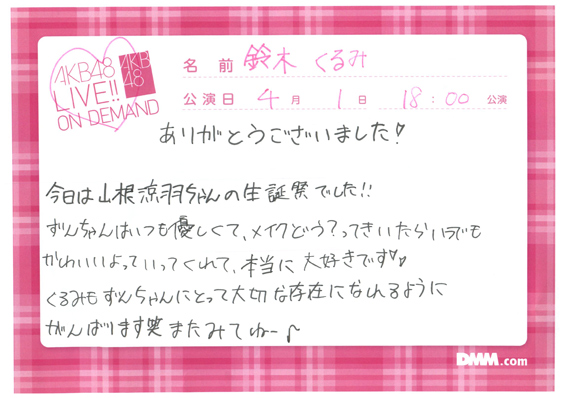 AKB48
LIVE!!
ON DEMAND
AKB
48
名前 鈴木 くるみ
公演日 4月 1日 18:00 公演
ありがとうございました!
今日は山根涼羽ちゃんの生誕祭でした!!
ずんちゃんはいつも優しくて、メイクどう?ってきいたらいつでも
かわいいよっていってくれて、本当に大好きです♡♡
くるみもずんちゃんにとって大切な存在になれるように
がんばります笑またみてねー♪
DMM.com